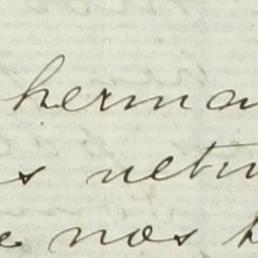 herma
s netu
nos